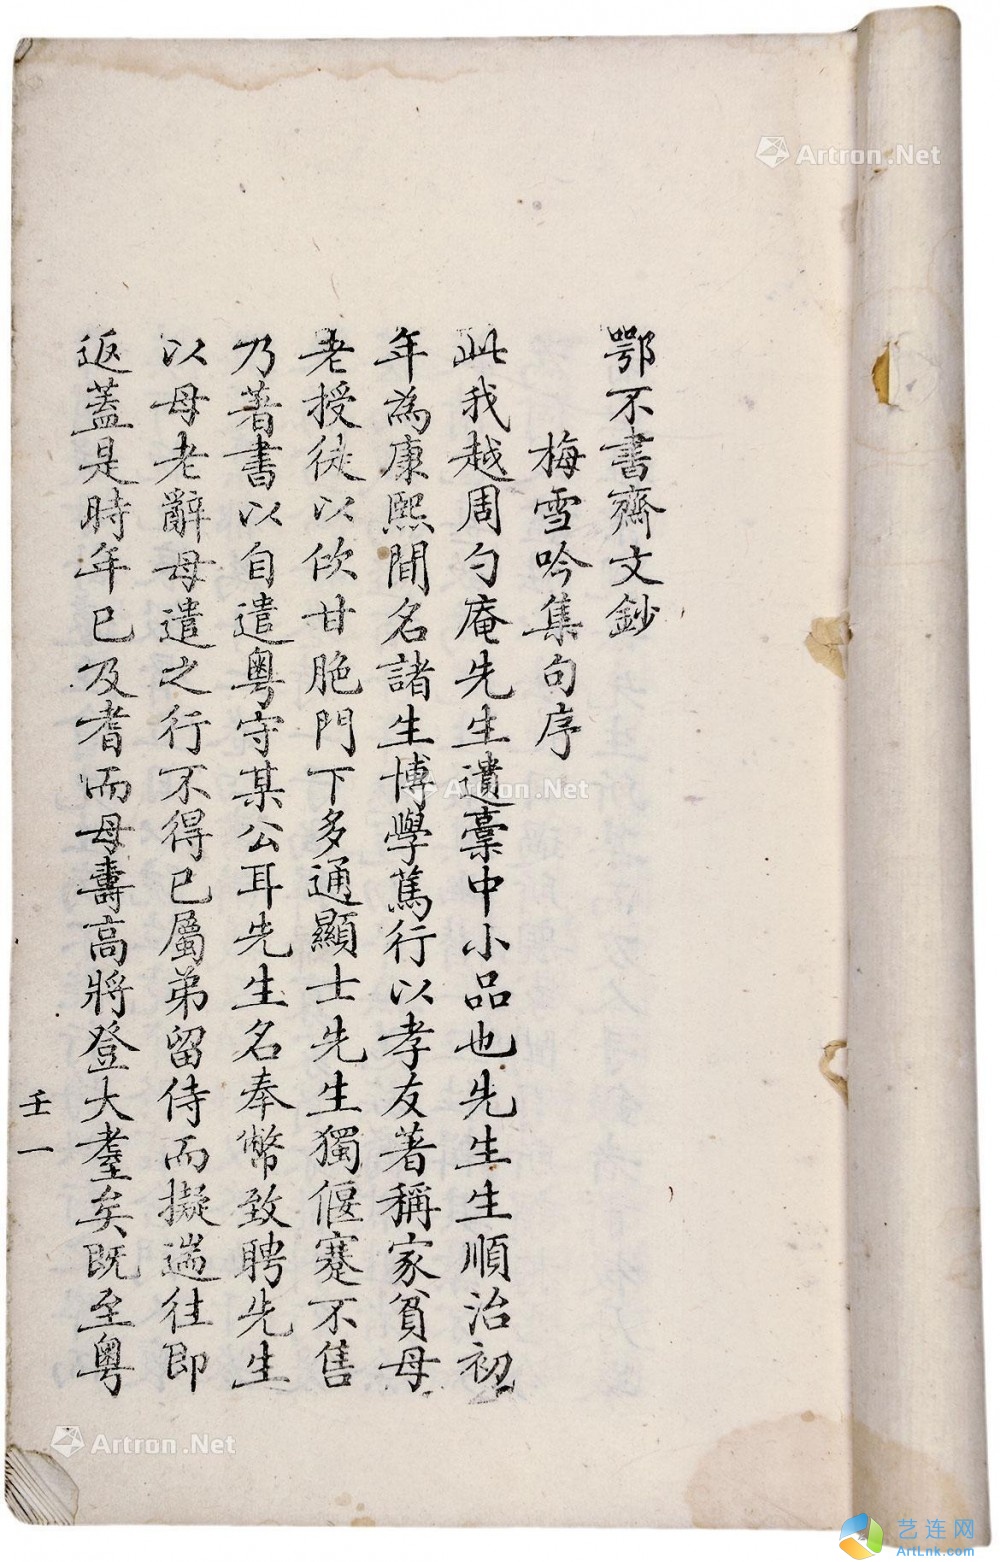 鄂不書齋文鈔
梅雪吟集句序
此我越周勺庵先生遺稾中小品也先生生順治初
年為康熙間名諸生博學篤行以孝友著稱家貧母
老授徒以佽甘脃門下多通顯士先生獨偃蹇不售
乃著書以自遣粵守某公耳先生名奉幣致聘先生
以母老辭母遣之行不得已屬弟留侍而擬遄往即
返蓋是時年已及耆而母壽高將登大耋矣既至粵
壬一
Artron.Net
Artron.Net
Artron.Net
艺连网
ArtLnk.com